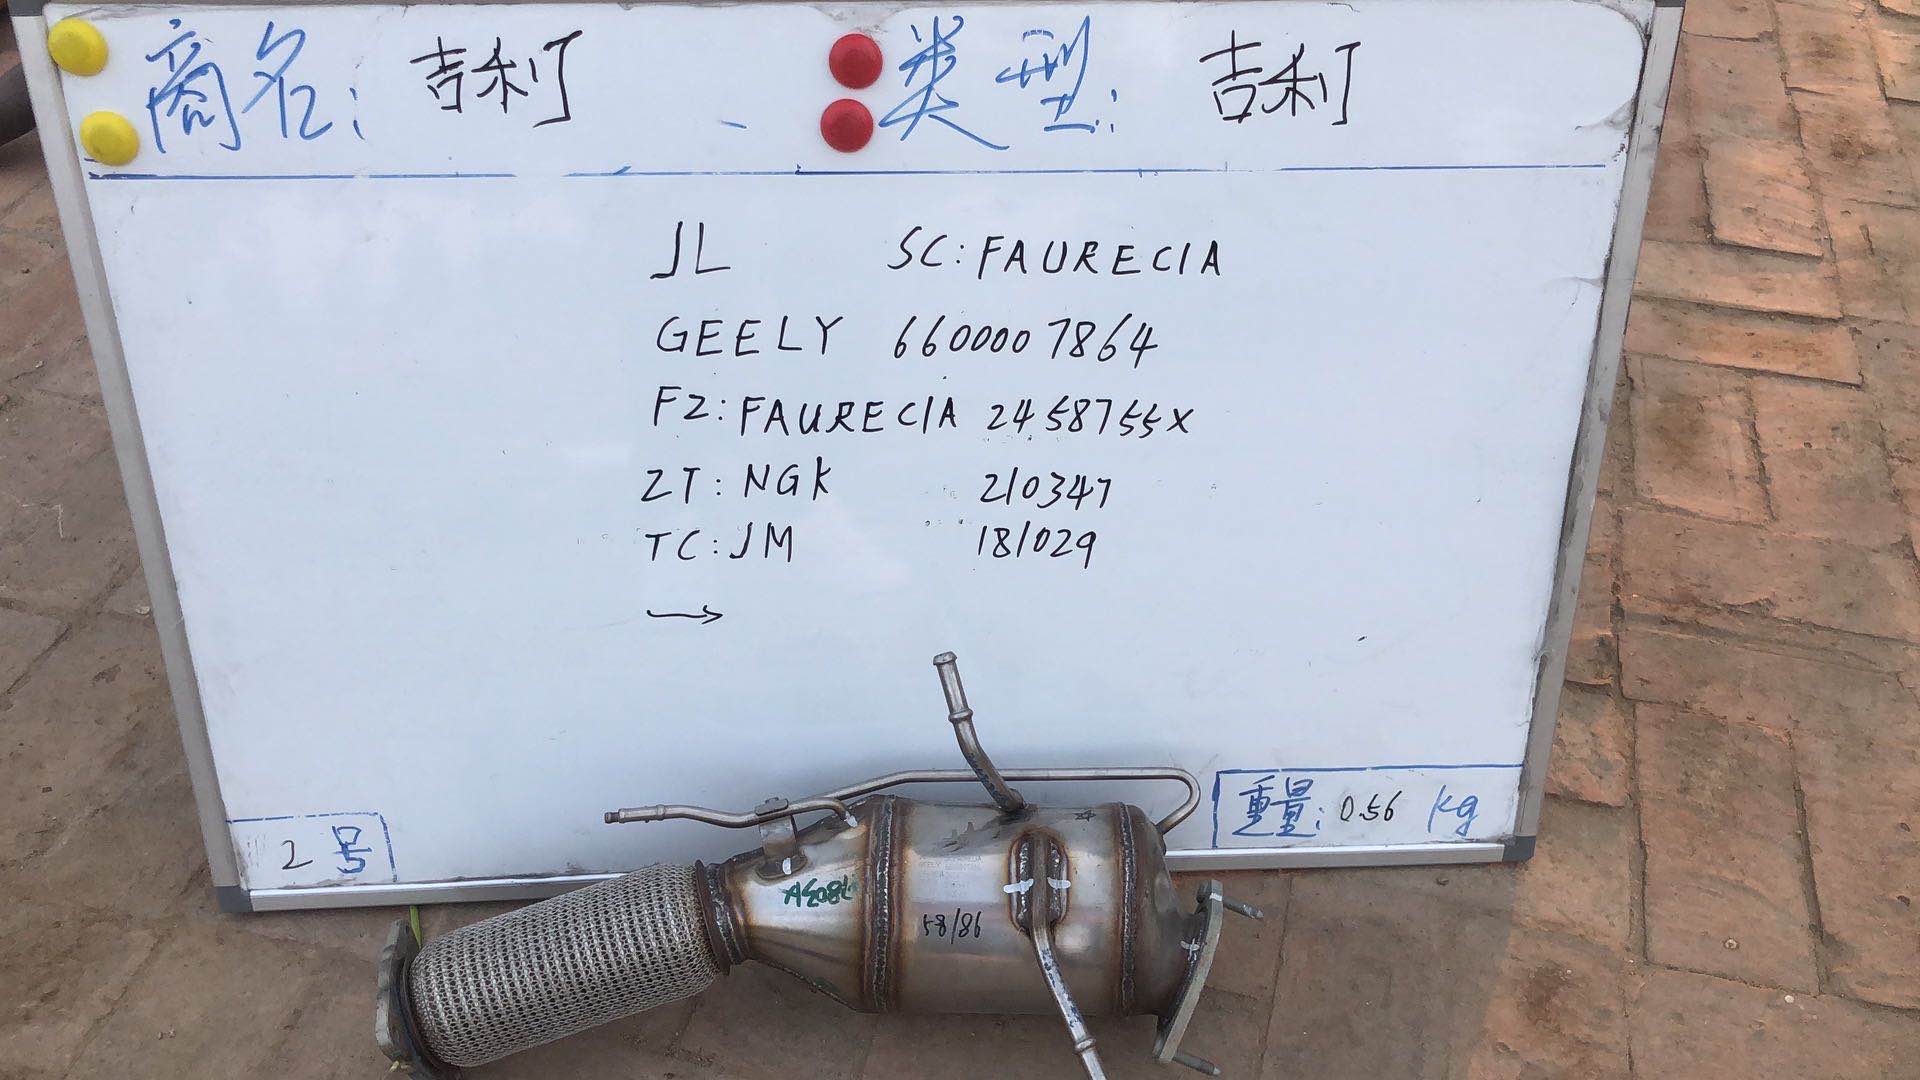 商名: 吉利
类型: 吉利
JL SC: FAURECIA
GEELY 6600007864
FZ: FAURECIA 2458755X
ZT: NGK 210347
TC: JM 181029
→
2号
重量: 0.56 kg
58/86